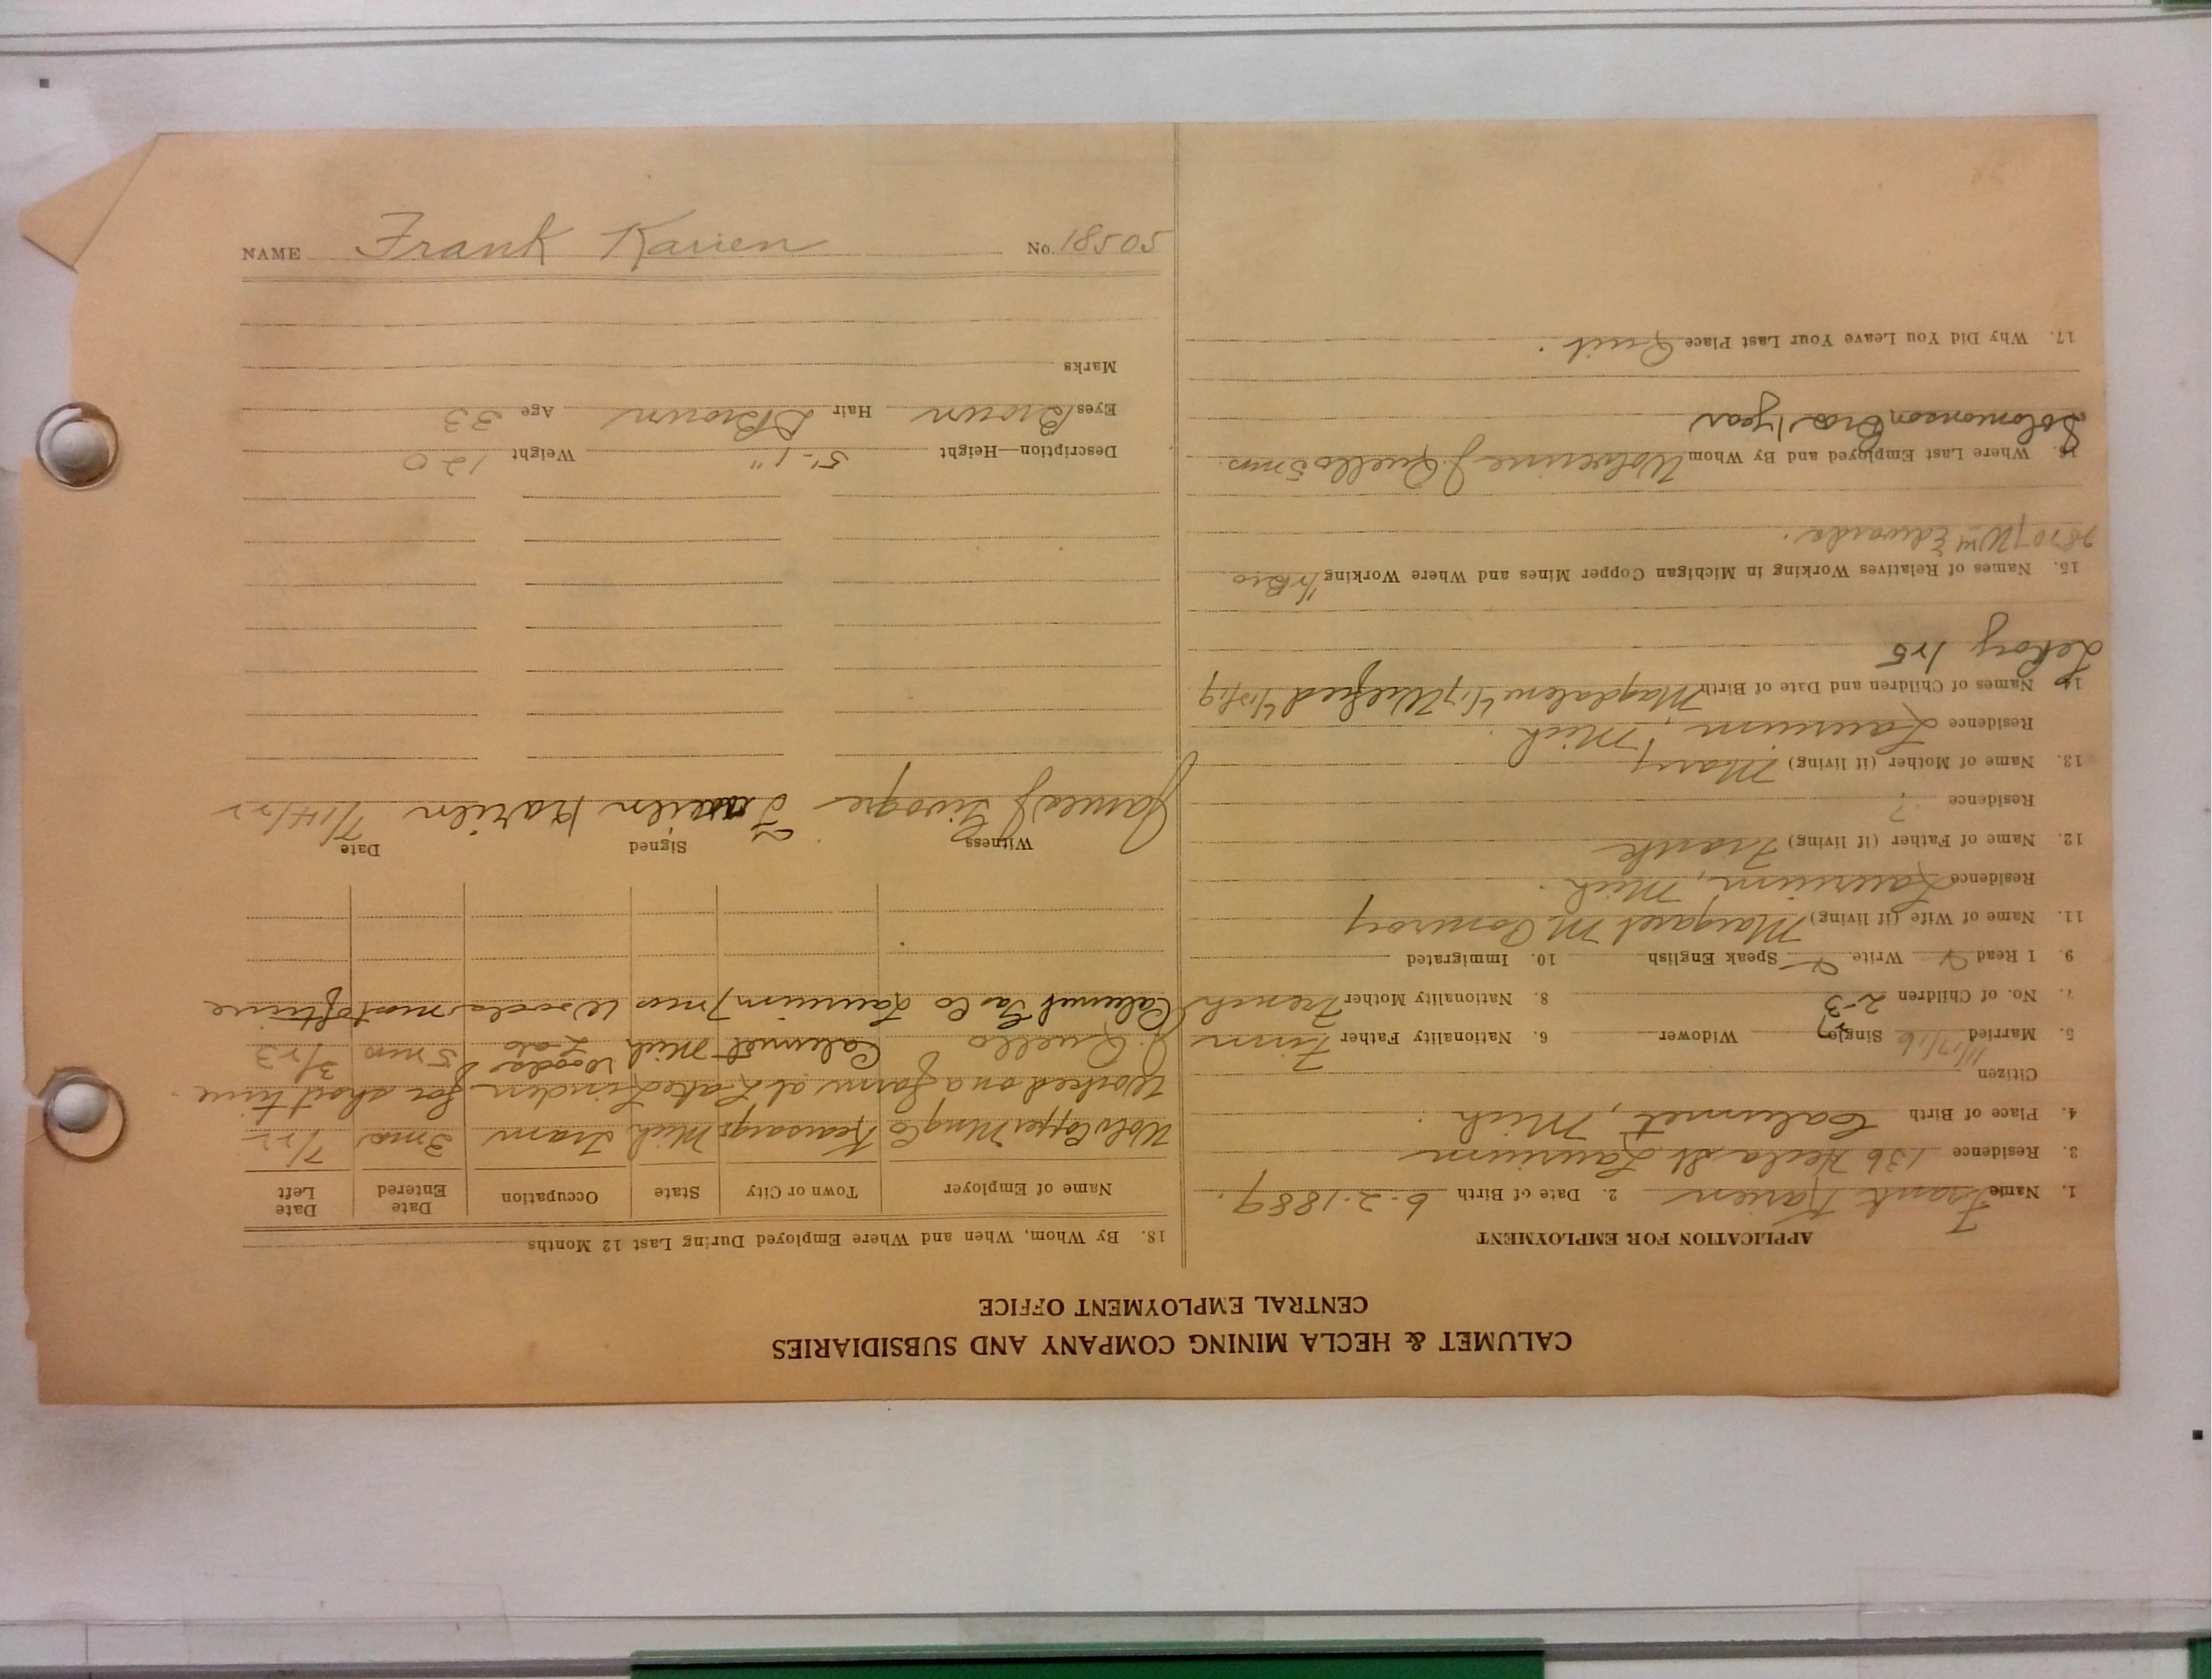 CALUMET & HECLA MINING COMPANY AND SUBSIDIARIES
CENTRAL EMPLOYMENT OFFICE
APPLICATION FOR EMPLOYMENT
1. Name Frank Karien 2. Date of Birth 6-2-1889.
3. Residence 136 Hecla St Laurium
4. Place of Birth Calumet, Mich.
Citizen
5. Married 11/17/16 Single Widower 6. Nationality Father Finn
7. No. of Children 2-3 8. Nationality Mother French
9. I Read Write Speak English 10. Immigrated
11. Name of Wife (if living) Margaret M Pomeroy
Residence Laurium, Mich.
12. Name of Father (if living) Frank
Residence ?
13. Name of Mother (if living) Mary
Residence Laurium, Mich.
14. Names of Children and Date of Birth Magdalene Wilfred
LeRoy 1r5
15. Names of Relatives Working in Michigan Copper Mines and Where Working ½ Bro
Wm Edwards.
16. Where Last Employed and By Whom Wolverine J. Quello 5 mos.
Solomonson Bros 1 year
17. Why Did You Leave Your Last Place Quit.
18. By Whom, When and Where Employed During Last 12 Months
Name of Employer Town or City State Occupation Date Entered Date Left
Wolv Copper Mng Co Kearsarge Mich Tram 3 mos 7/22
Worked on a farm at Lake Linden for short time.
J. Quello Calumet Mich Woods Lab 5 mos 3/23
Calumet Gas Co Laurium 7 mos Woods most of time
Witness Signed Date
Karien 7/14/22
Description—Height 5'-1" Weight 120
Eyes Brown Hair D Brown Age 33
Marks
NAME Frank Karien No. 18505